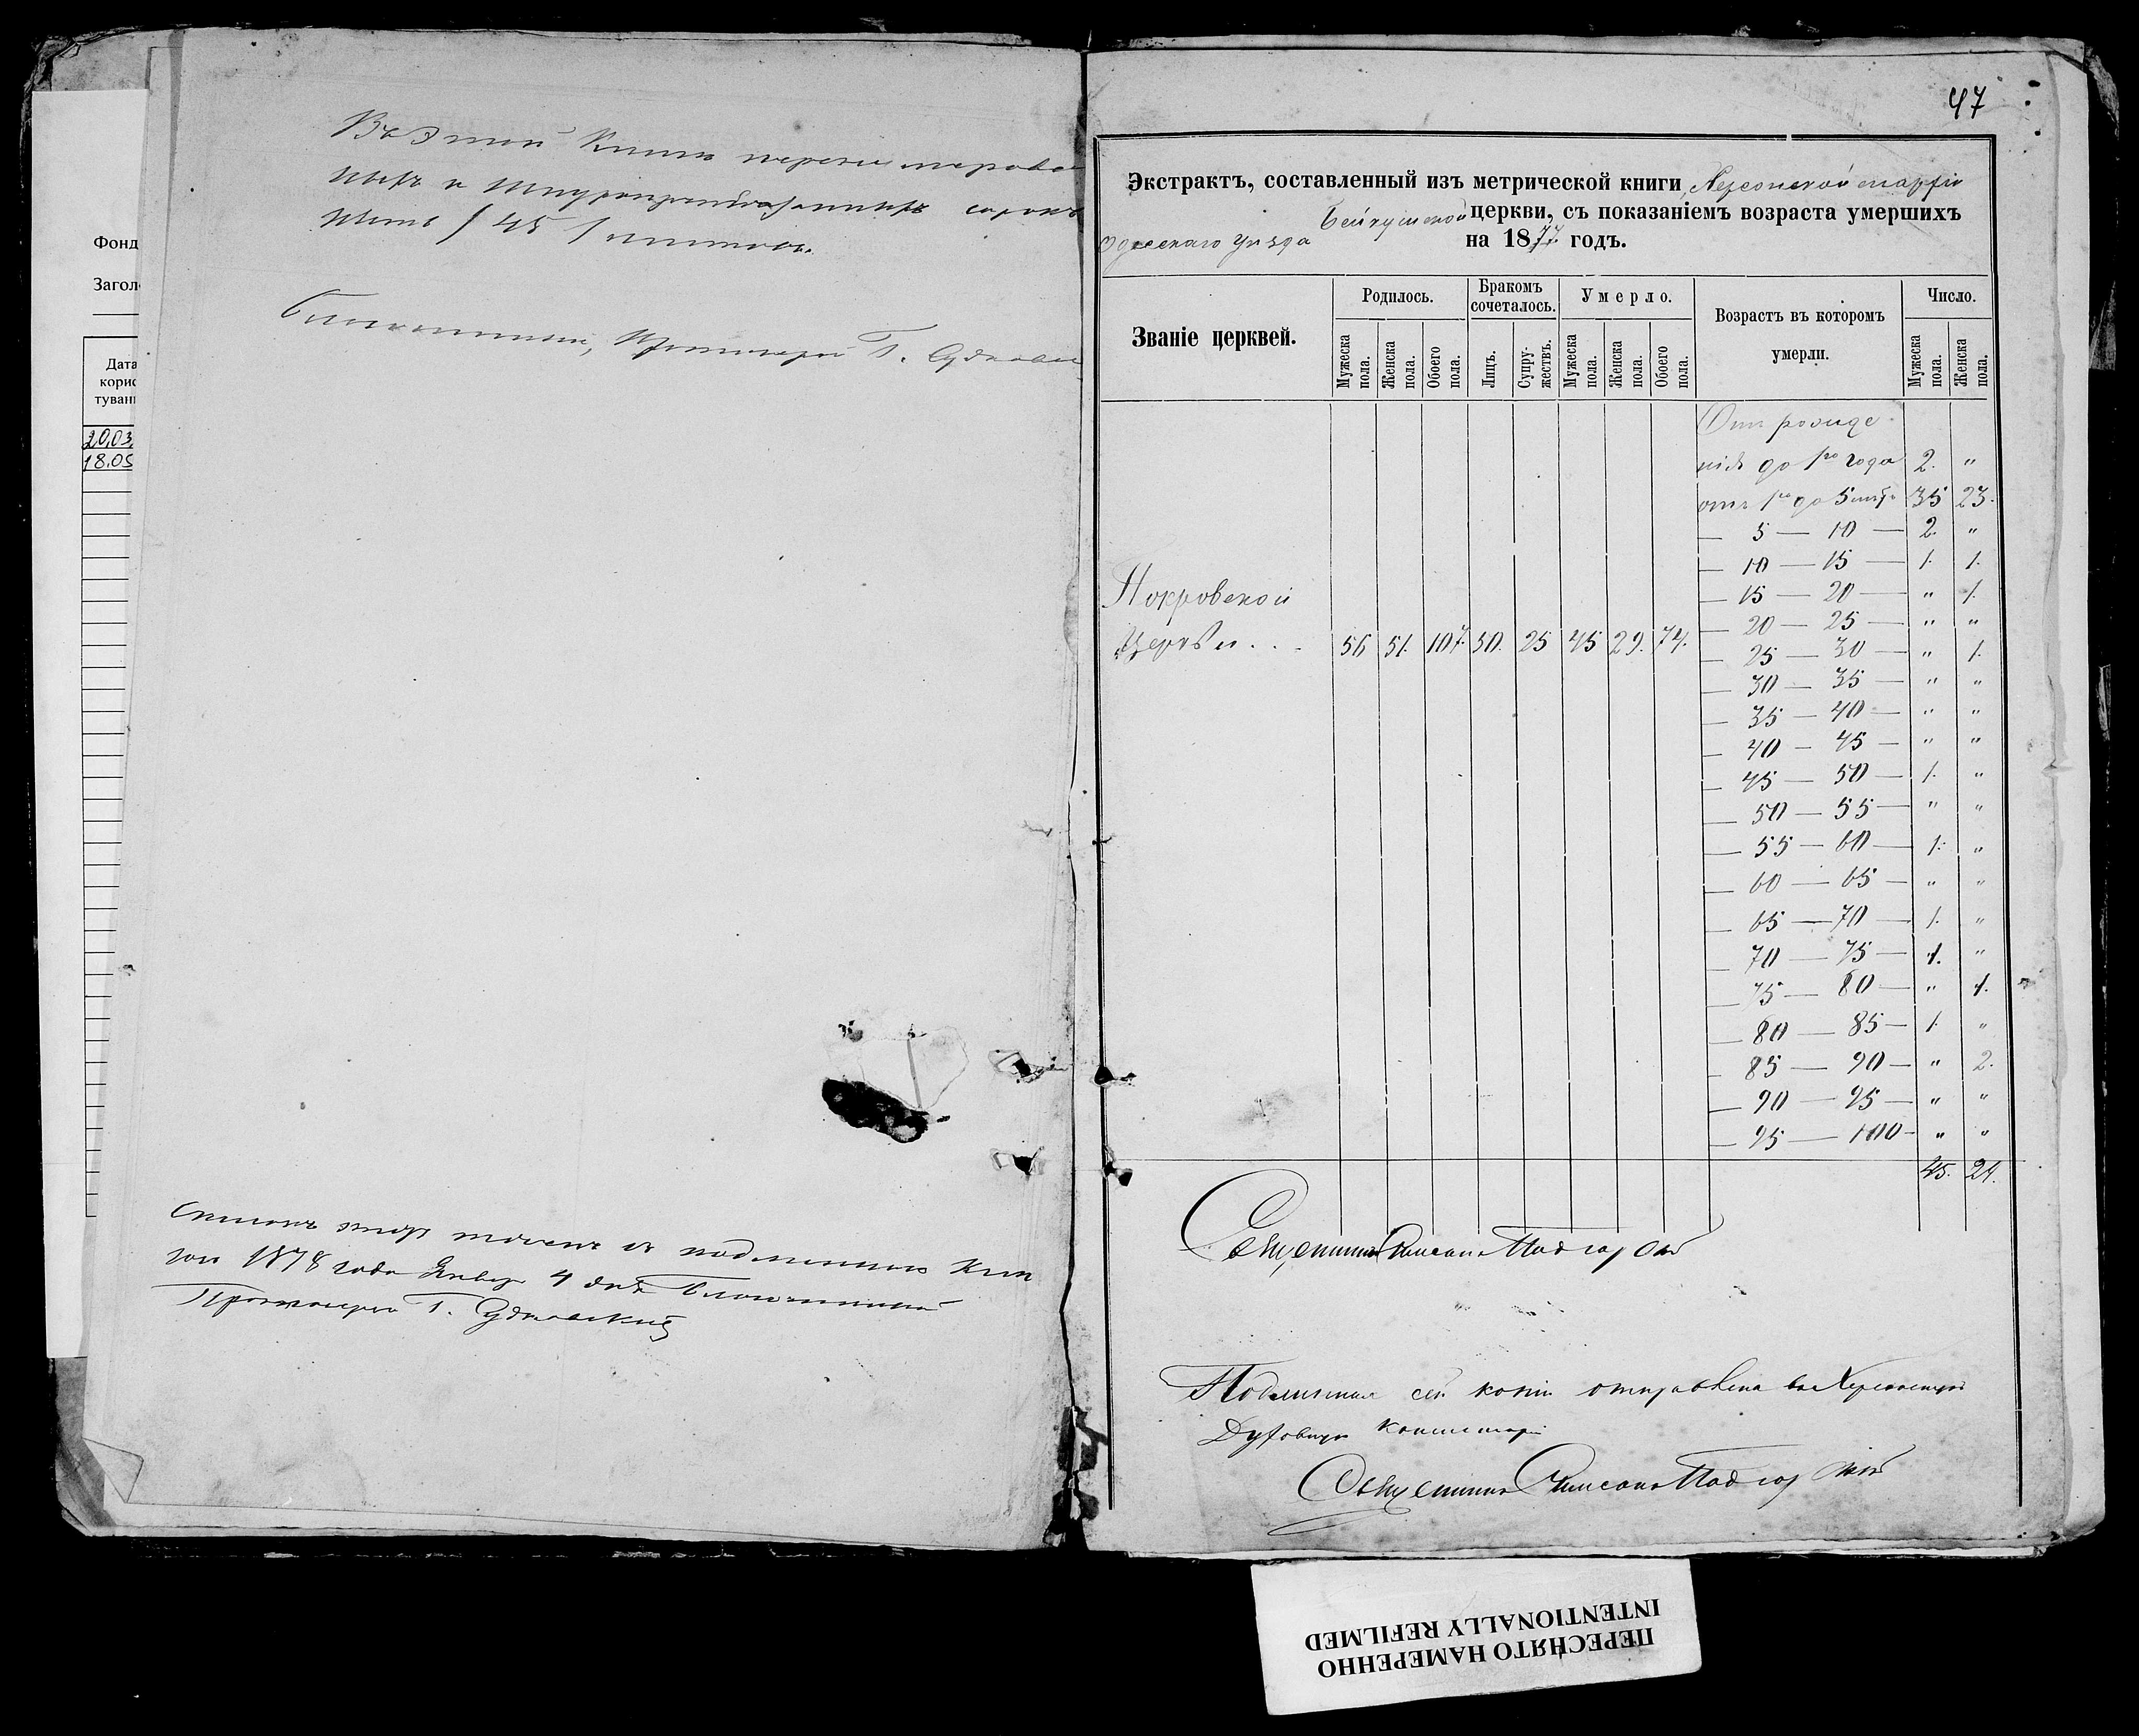 Фонд
Загол
Дата
корис
туван
20,03,
18.05
Въ этой Книге перенумерован
ныхъ и шнурозапечатанныхъ сорокъ
пять / 45 / листовъ.
Благочинный, Протоиерей Г. Судковск
Списокъ этотъ точенъ съ подлинною Кни
гою 1878 года Января 4 дня Благочинный
Протоиерей Г. Судковский
47
Экстрактъ, составленный изъ метрической книги Херсонской епархіи
Одесскаго уѣзда Бейкушской церкви, съ показаніемъ возраста умершихъ
на 1877 годъ.
Званіе церквей.
Родилось.
Бракомъ сочеталось.
Умерло.
Возрастъ въ которомъ умерли.
Число.
Мужеска пола. Женска пола. Обоего пола. Лицъ. Супружествъ. Мужеска пола. Женска пола. Обоего пола. Мужеска пола. Женска пола.
Отъ рожде
нія до 1го года 2. "
отъ 1го до 5 лѣтъ 35 23.
— 5 — 10 — 2. "
— 10 — 15 — 1. 1.
— 15 — 20 — " 1.
— 20 — 25 — " "
— 25 — 30 — " 1.
— 30 — 35 — " "
— 35 — 40 — " "
— 40 — 45 — " "
— 45 — 50 — 1. "
— 50 — 55 — " "
— 55 — 60 — 1. "
— 60 — 65 — " "
— 65 — 70 — 1. "
— 70 — 75 — 1. "
— 75 — 80 — " 1.
— 80 — 85 — 1. "
— 85 — 90 — " 2.
— 90 — 95 — " "
— 95 — 100 — " "
45. 29.
Покровской
Церкви . . . 56 51. 107. 50. 25 45 29. 74.
Священникъ Симеонъ Подгорскій
Подлинная сей копіи отправлена въ Херсонскую
Духовную Консисторію
Священникъ Симеонъ Подгорскій
ПЕРЕСНЯТО НАМЕРЕННО
INTENTIONALLY REFILMED